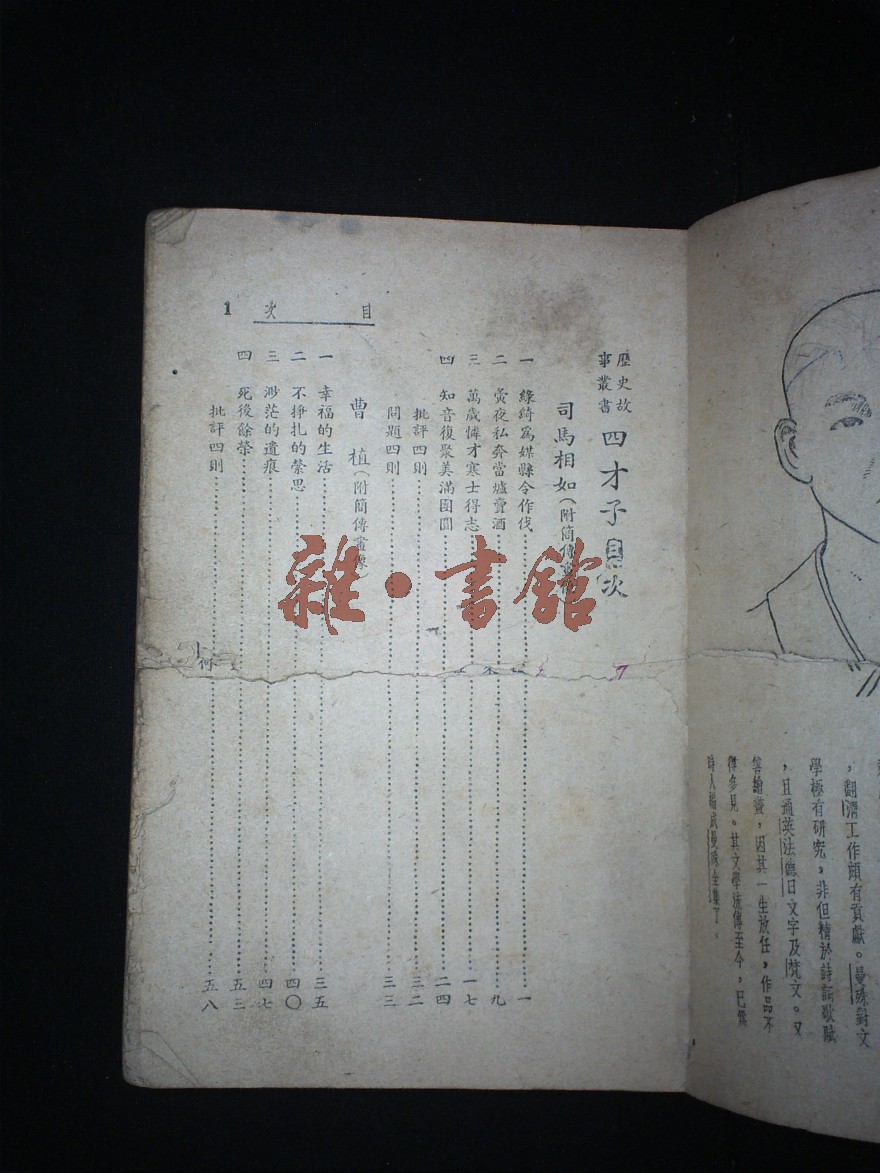 歷史故
事叢書
四才子目次
司馬相如(附簡傳畫
一 綠綺爲媒縣令作伐 一
二 夤夜私奔當壚賣酒 九
三 萬歲憐才寒士得志 一七
四 知音復聚美滿團圓 二四
批評四則 三二
問題四則 三三
曹植(附簡傳畫像)
一 幸福的生活 三五
二 不掙扎的縈思 四〇
三 渺茫的遺痕 四七
四 死後餘榮 五三
批評四則 五八
目次 1
雜·書館
,翻濟工作頗有貢獻。曼殊對文
學極有研究,非但精於詩詞歌賦
,且通英法德日文字及梵文。又
善繪畫,因其一生放任,作品不
得多見。其文學流傳至今,已無
詩人編成曼殊全集了。